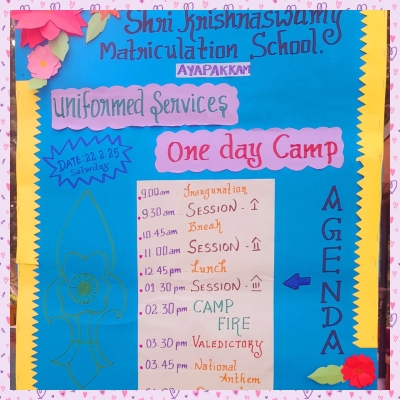 Shri Krishnaswamy
Matriculation School.
AYAPAKKAM
Uniformed Services
One day Camp
DATE: 22.2.25
Saturday
AGENDA
9.00am - Inauguration
9.30am - SESSION - I
10.45am Break
11.00am SESSION - II
12.45 pm Lunch
01.30 pm SESSION - III
02.30 pm CAMP
FIRE
03.30 pm VALEDICTORY
03.45 pm National
Anthem